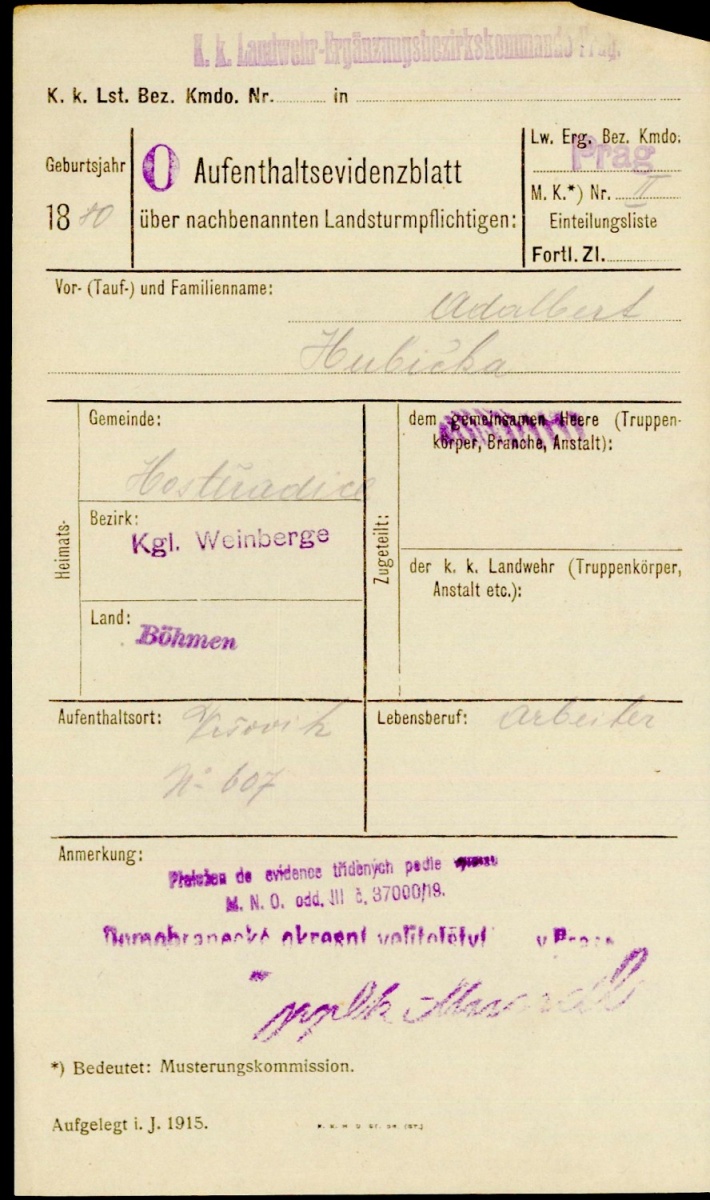 K. k. Landwehr-Ergänzungsbezirkskommando Prag.
K. k. Lst. Bez. Kmdo. Nr. in
Geburtsjahr
1880
O Aufenthaltsevidenzblatt
über nachbenannten Landsturmpflichtigen:
Lw. Erg. Bez. Kmdo.
Prag
M. K.*) Nr. II
Einteilungsliste
Fortl. Zl.
Vor- (Tauf-) und Familienname:
Adalbert
Hubička
Heimats-
Gemeinde:
Hostěradice
Bezirk:
Kgl. Weinberge
Land:
Böhmen
Zugeteilt:
dem gemeinsamen Heere (Truppen-
körper, Branche, Anstalt):
der k. k. Landwehr (Truppenkörper,
Anstalt etc.):
Aufenthaltsort:
No 607
Lebensberuf: Arbeiter
Anmerkung:
Přeložen do evidence tříděných podle
M. N. O. odd. III č. 37000/19.
Domobranecké okresní velitelství v Praze
*) Bedeutet: Musterungskommission.
Aufgelegt i. J. 1915.